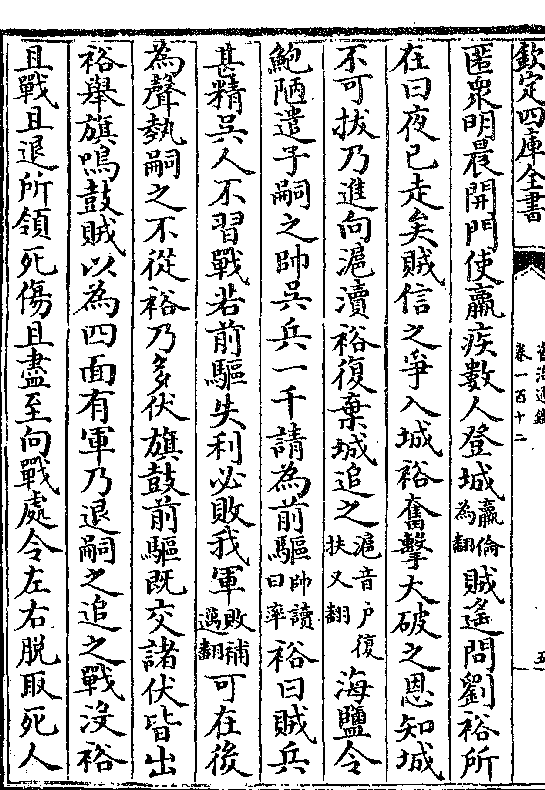 欽定四庫全書
資治通鑑
卷一百十二
五
匿衆明晨開門使羸疾數人登城羸倫為翻賊遙問劉裕所
在曰夜已走矣賊信之爭入城裕奮擊大破之恩知城
不可拔乃進向滬瀆裕復棄城追之滬音户復扶又翻海鹽令
鮑陋遣子嗣之帥吳兵一千請為前驅帥讀曰率裕曰賊兵
甚精吳人不習戰若前驅失利必敗我軍敗補邁翻可在後
為聲勢嗣之不從裕乃多伏旗鼓前驅既交諸伏皆出
裕舉旗鳴鼓賊以為四面有軍乃退嗣之追之戰没裕
且戰且退所領死傷且盡至向戰處令左右脱取死人